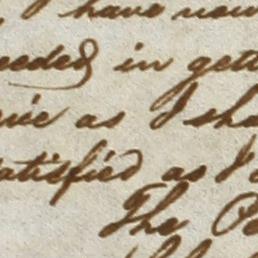 I have now
needed in gett
as I sha
satisfied as I
The Pe